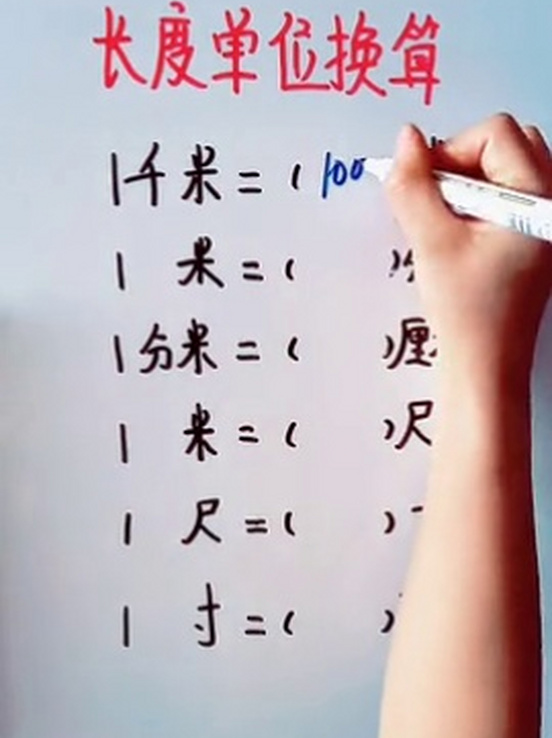 长度单位换算
1千米=(100
1 米=( )分
1分米=( )厘
1 米=( )尺
1 尺=( )
1 寸=( )